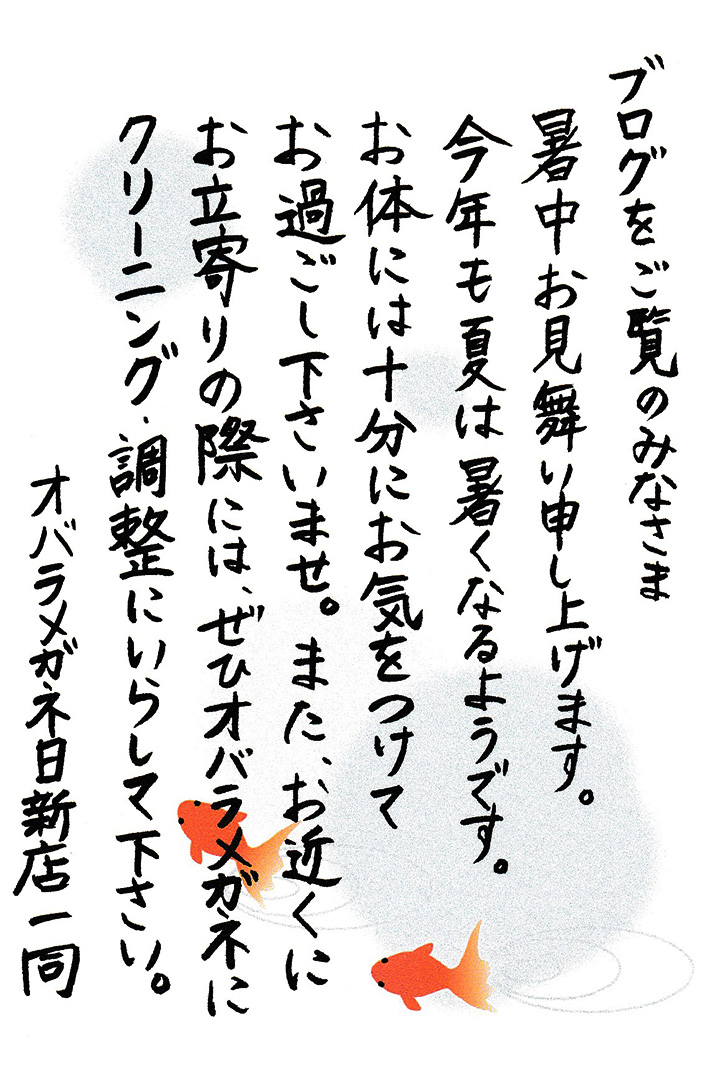 ブログをご覧のみなさま
暑中お見舞い申し上げます。
今年も夏は暑くなるようです。
お体には十分にお気をつけて
お過ごし下さいませ。また、お近くに
お立寄りの際には、ぜひオバラメガネに
クリーニング・調整にいらして下さい。
オバラメガネ日新店一同